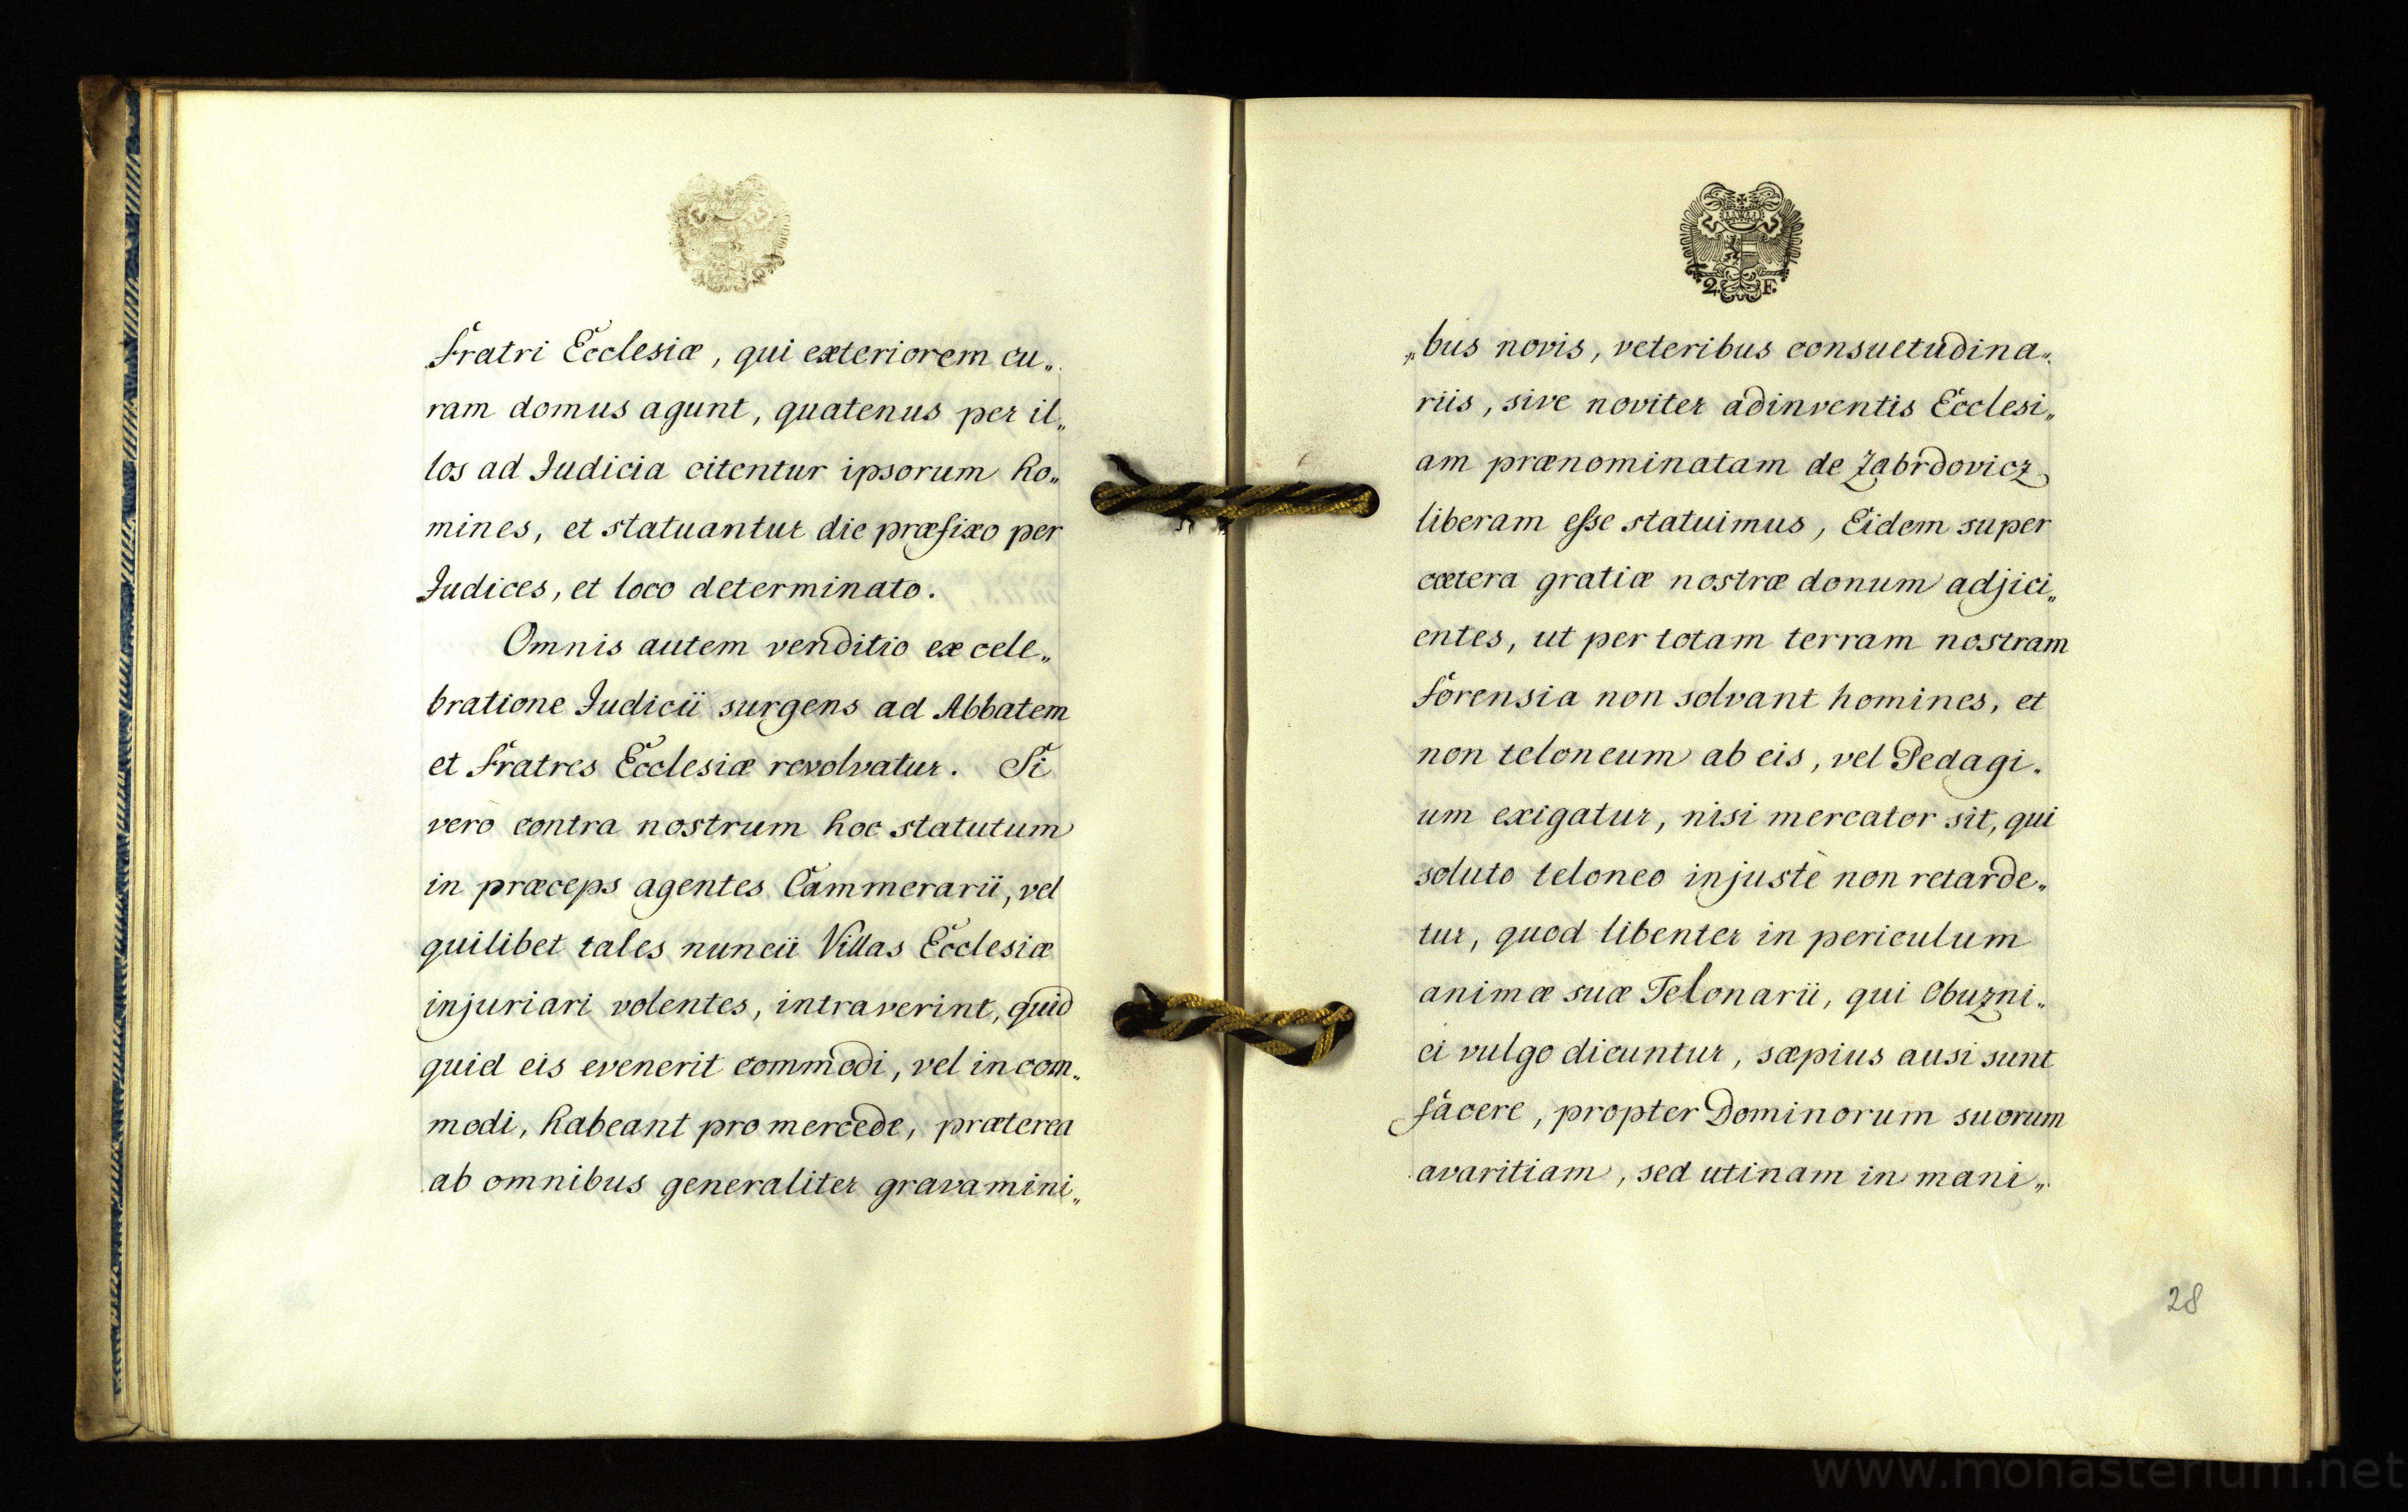 Fratri Ecclesiæ, qui exteriorem cu„
ram domus agunt, quatenus per il„
los ad Judicia citentur ipsorum ho„
mines, et statuantur die præfixo per
Judices, et loco determinato.
Omnis autem venditio ex cele„
bratione Judicii surgens ad Abbatem
et Fratres Ecclesiæ revolvatur. Si
verò contra nostrum hoc statutum
in præceps agentes Cammerarii, vel
quilibet tales nuncii Villas Ecclesiæ
injuriari volentes, intraverint, quid
quid eis evenerit commodi, vel incom„
modi, habeant pro mercede, præterea
ab omnibus generaliter gravamini„
2. F.
„bus novis, veteribus consuetudina„
riis, sive noviter adinventis Ecclesi„
am prænominatam de Zabrdovicz
liberam esse statuimus, Eidem super
cætera gratiæ nostræ donum adjici„
entes, ut per totam terram nostram
forensia non solvant homines, et
non teloneum ab eis, vel Pedagi„
um exigatur, nisi mercator sit, qui
soluto teloneo injustè non retarde„
tur, quod libenter in periculum
animæ suæ Telonarii, qui Obuzni„
ci vulgo dicuntur, sæpius ausi sunt
facere, propter Dominorum suorum
avaritiam, sed utinam in mani„
28
www.monasterium.net